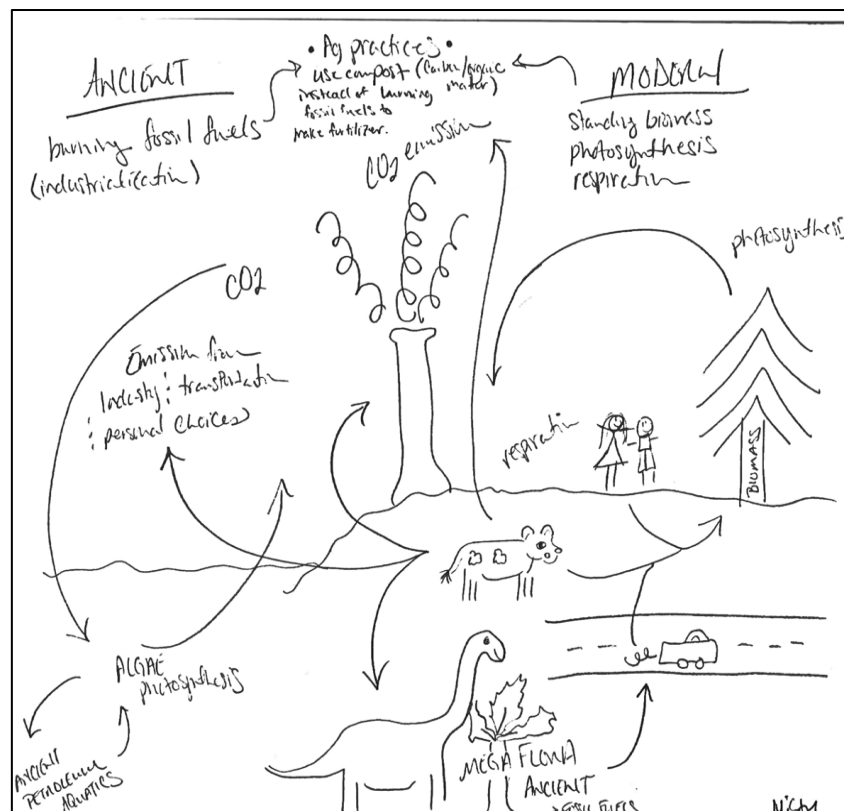 ANCIENT
burning fossil fuels
(industrialization)
• Ag practices •
use compost (Carbon/organic
instead of burning mater)
fossil fuels to
make furtilizer.
MODERN
standing biomass
photosynthesis
respiration
CO2 emission
photosynthesis
CO2
Emission from
industry : transportation
: personal choices
respiration
BIOMASS
ALGAE
photosynthesis
ANCIENT
PETROLEUM
AQUATICS
MEGA FLORA
ANCIENT
FOSSIL FUELS